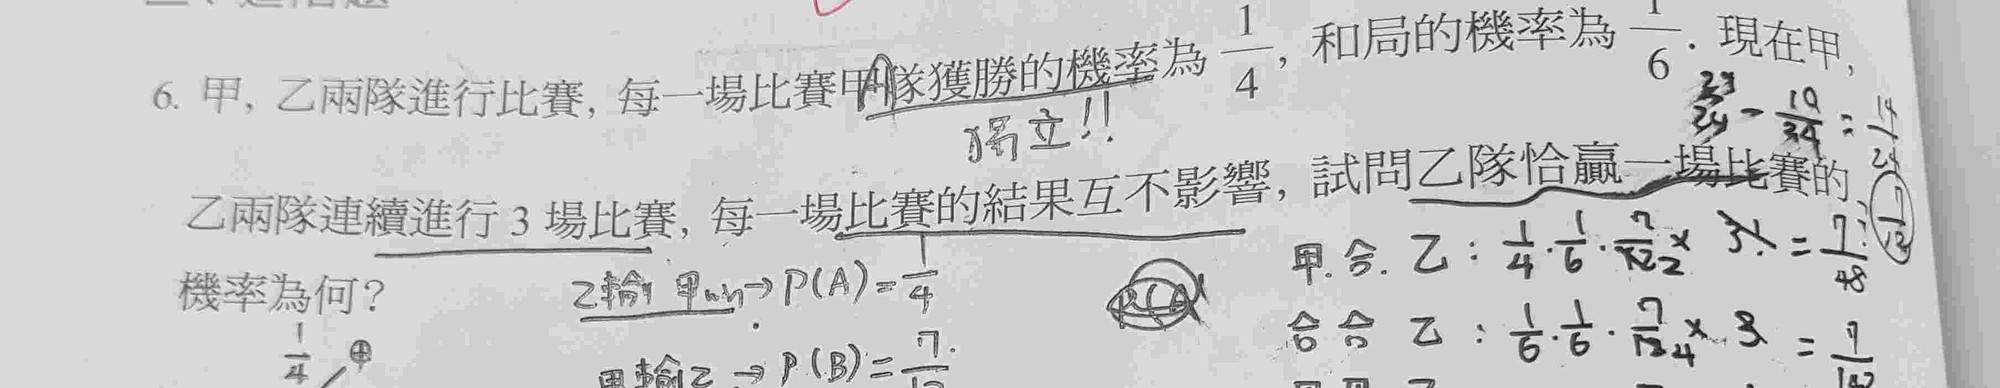 6. 甲, 乙兩隊進行比賽, 每一場比賽甲隊獲勝的機率為 1/4, 和局的機率為 1/6. 現在甲,
23/24 - 10/24 = 14/24
獨立!!
乙兩隊連續進行 3 場比賽, 每一場比賽的結果互不影響, 試問乙隊恰贏一場比賽的
7/12
甲.合.乙: 1/4 · 1/6 · 7/12 × 3! = 7/48
機率為何?
乙輸甲win→P(A)=1/4
合 合 乙: 1/6 · 1/6 · 7/12 × 3 =
1/4
甲輸乙→P(B)=7